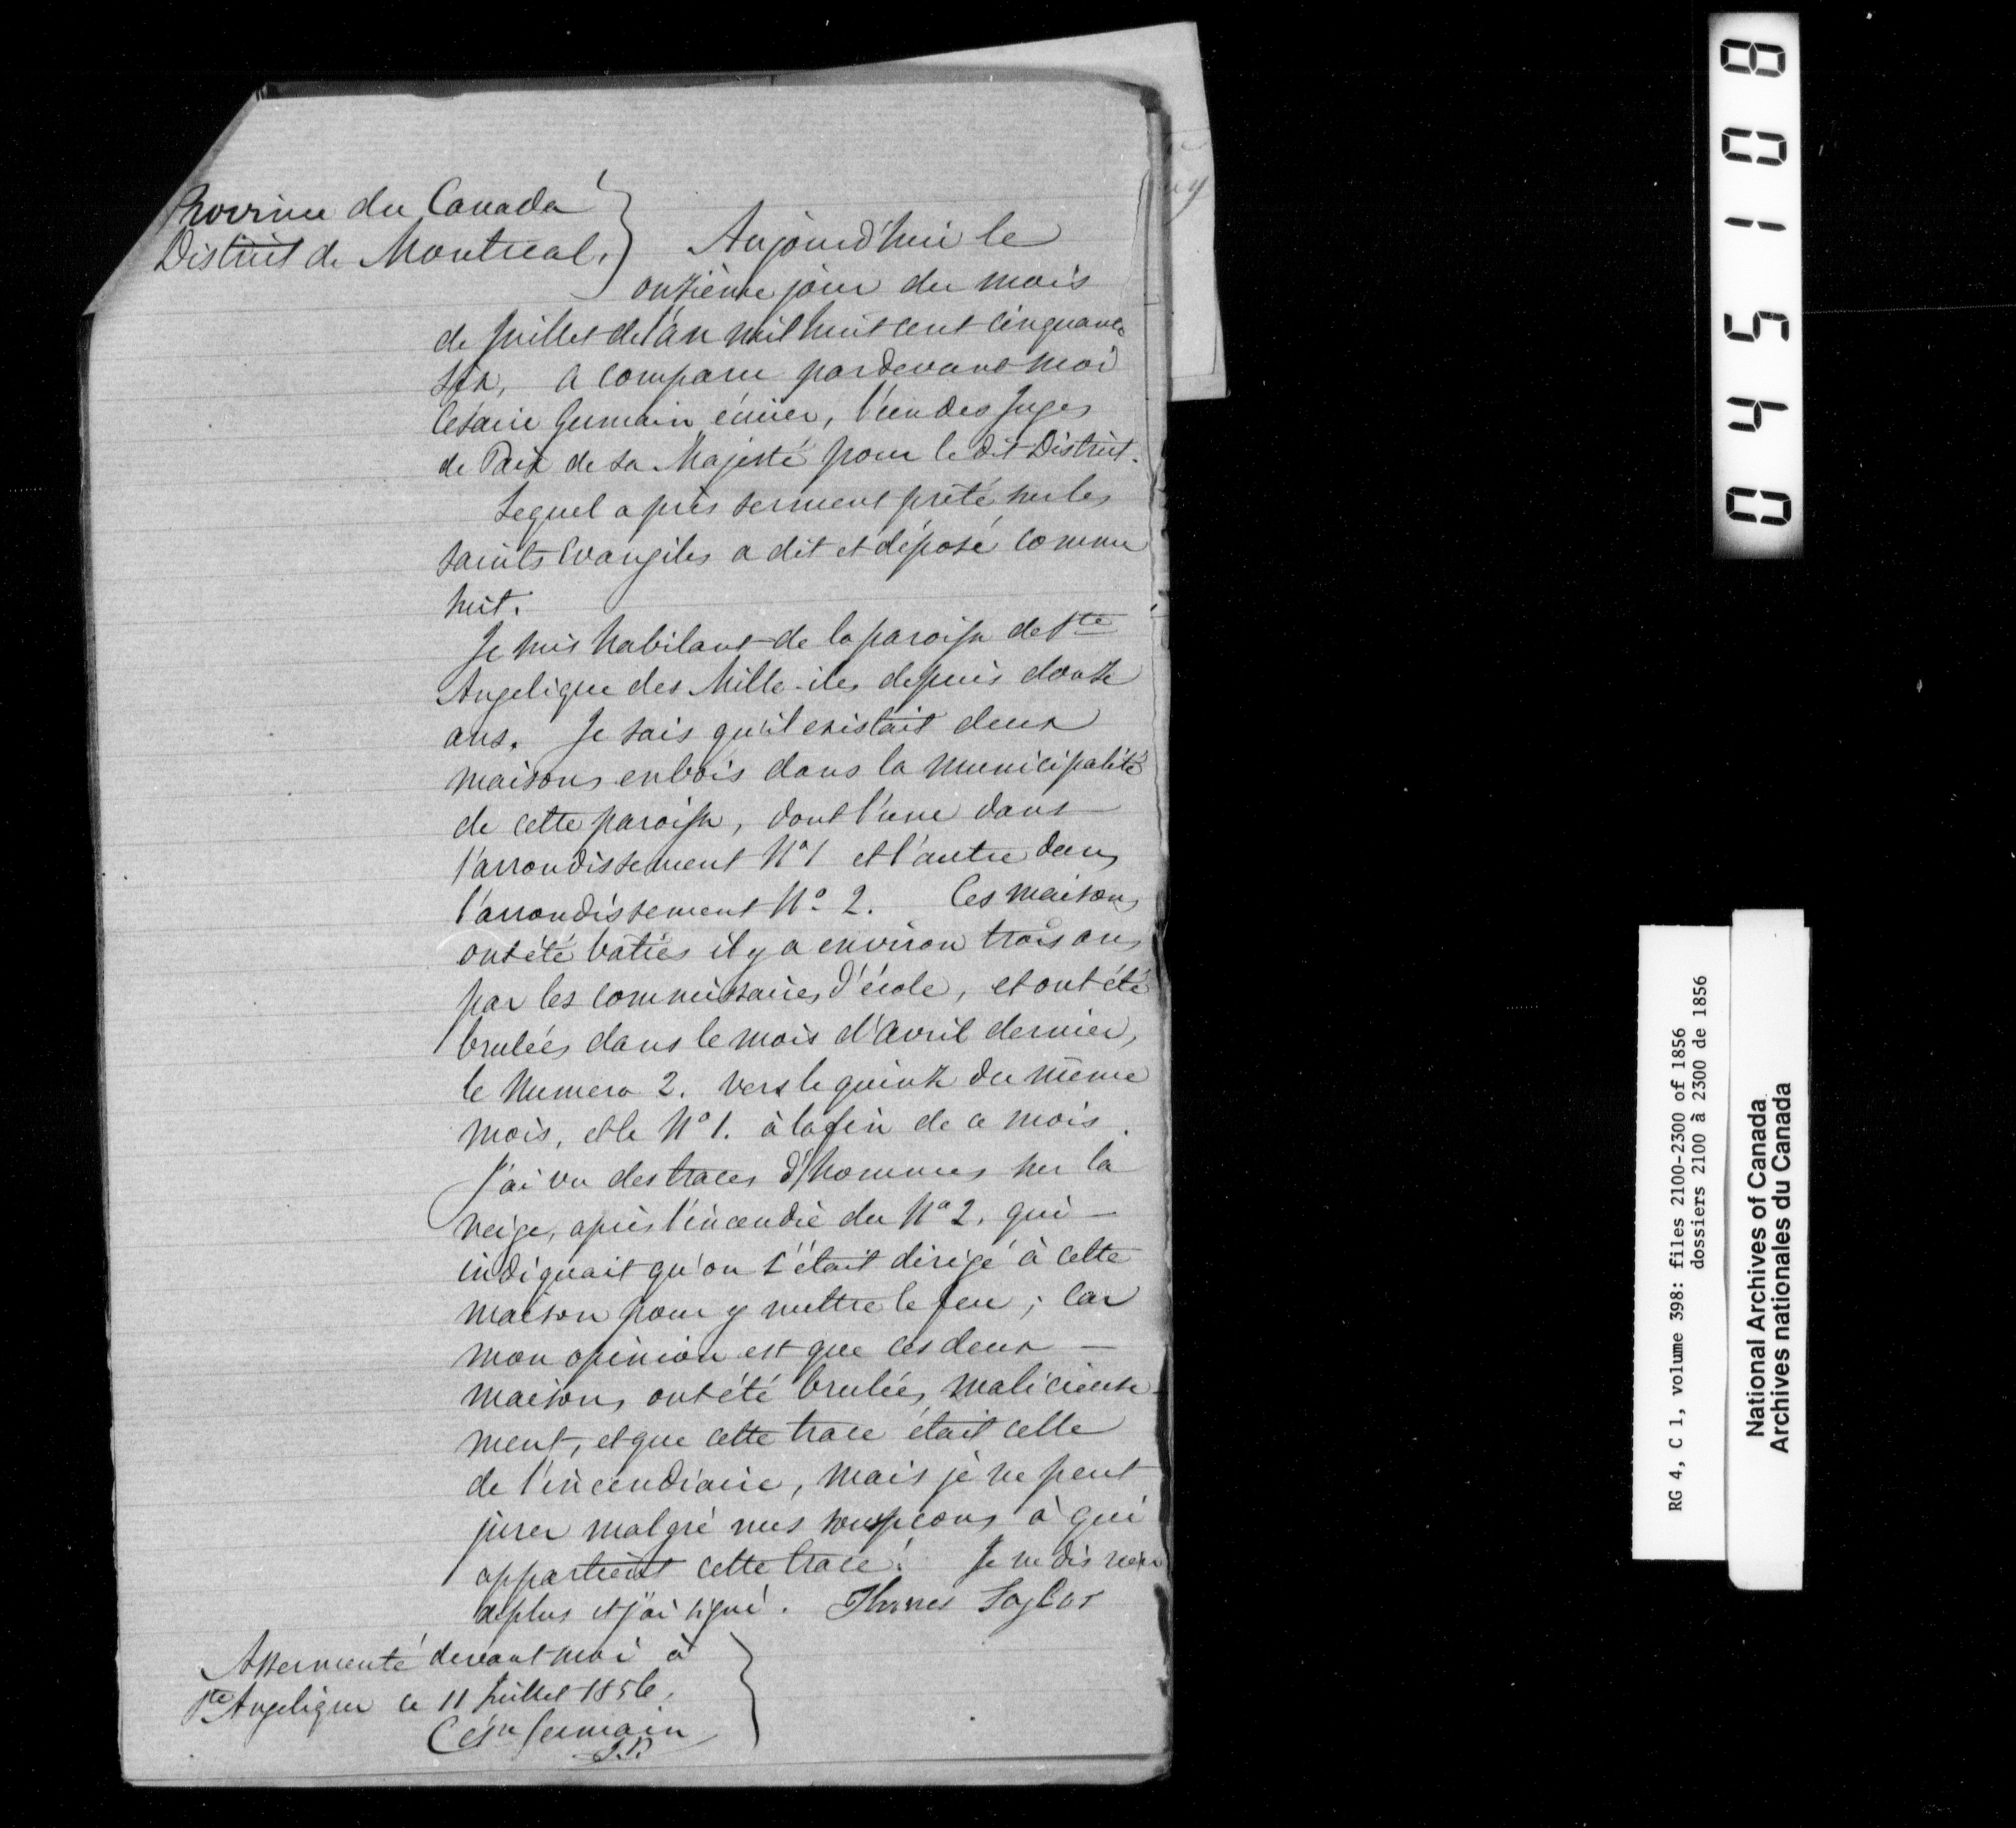 Province du Canada
District de Montreal.
Aujourd'hui le
onzième jour du mois
de Juillet de l'an mil huit cent cinquante
six, a comparu pardevant moi
Césaire Germain écuier, l'un des Juges
de Paix de Sa Majesté pour le dit District.
Lequel après serment prêté sur les
saints Evangiles a dit et déposé comme
suit.
Je suis habitant de la paroisse de Ste
Angelique des Mille-iles depuis douze
ans. Je sais qu'il existait deux
maisons en bois dans la municipalité
de cette paroisse, dont l'une dans
l'arrondissement No 1 et l'autre dans
l'arrondissement No 2. Ces maisons
ont été baties il y a environ trois ans
par les commissaires d'école, et ont été
brulées dans le mois d'avril dernier,
le Numero 2. vers le quinze du même
mois, et le No 1. à la fin de ce mois.
J'ai vu des traces d'hommes sur la
neige, après l'incendie du No 2, qui —
indiquait qu'on s'était dirigé à cette
maison pour y mettre le feu ; car
mon opinion est que ces deux —
maisons ont été brulées malicieuse-
ment, et que cette trace était celle
de l'incendiaire, mais je ne peut
jurer malgré mes soupcons à qui
appartient cette trace. Je ne dis rien
de plus et j'ai signé. Thomas Taylor
Assermenté devant moi à
Ste Angelique ce 11 Juillet 1856.
Césre Germain
J.P.
0 4 5 1 0 8
RG 4, C 1, volume 398: files 2100-2300 of 1856
dossiers 2100 à 2300 de 1856
National Archives of Canada
Archives nationales du Canada